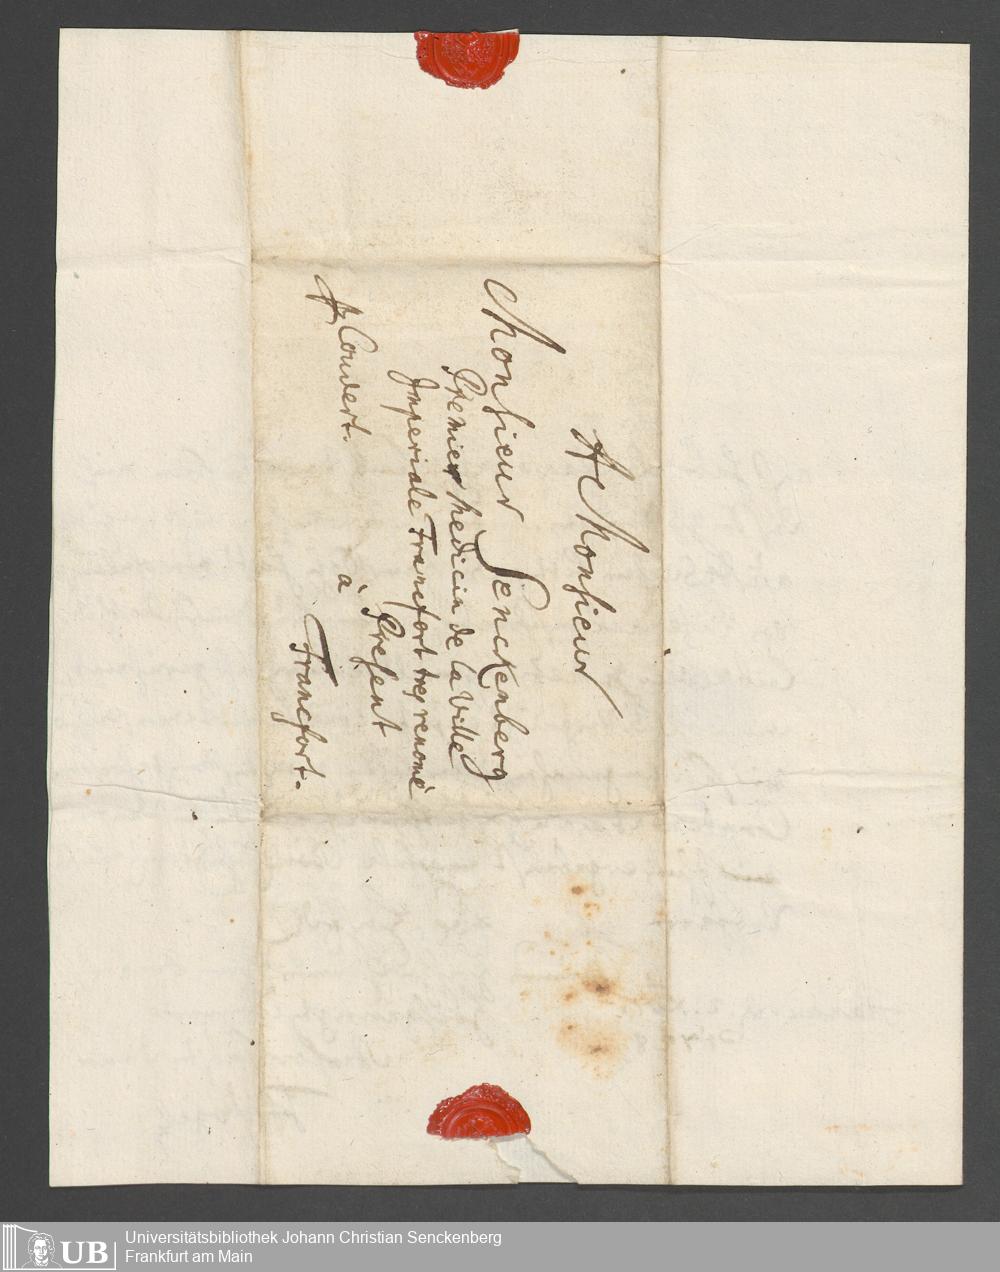 A Monsieur
Monsieur Senckenberg
Premier Medicin de la Ville
Imperiale Francfort tres renomé
à Present
Couvert. à Francfort.
Universitätsbibliothek Johann Christian Senckenberg
UB Frankfurt am Main